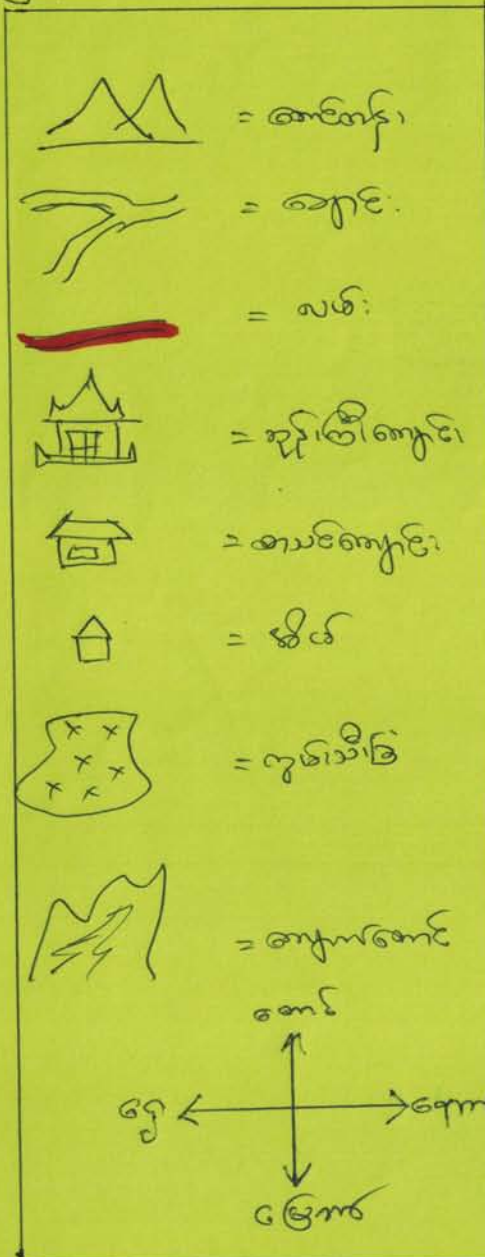 = တောင်တန်း
= ချောင်း
= လမ်း
= ဘုန်းကြီးကျောင်း
= စာသင်ကျောင်း
= အိမ်
= ကွမ်းသီးခြံ
= ကျောက်တောင်
တောင်
ရှေ့
နောက်
မြောက်